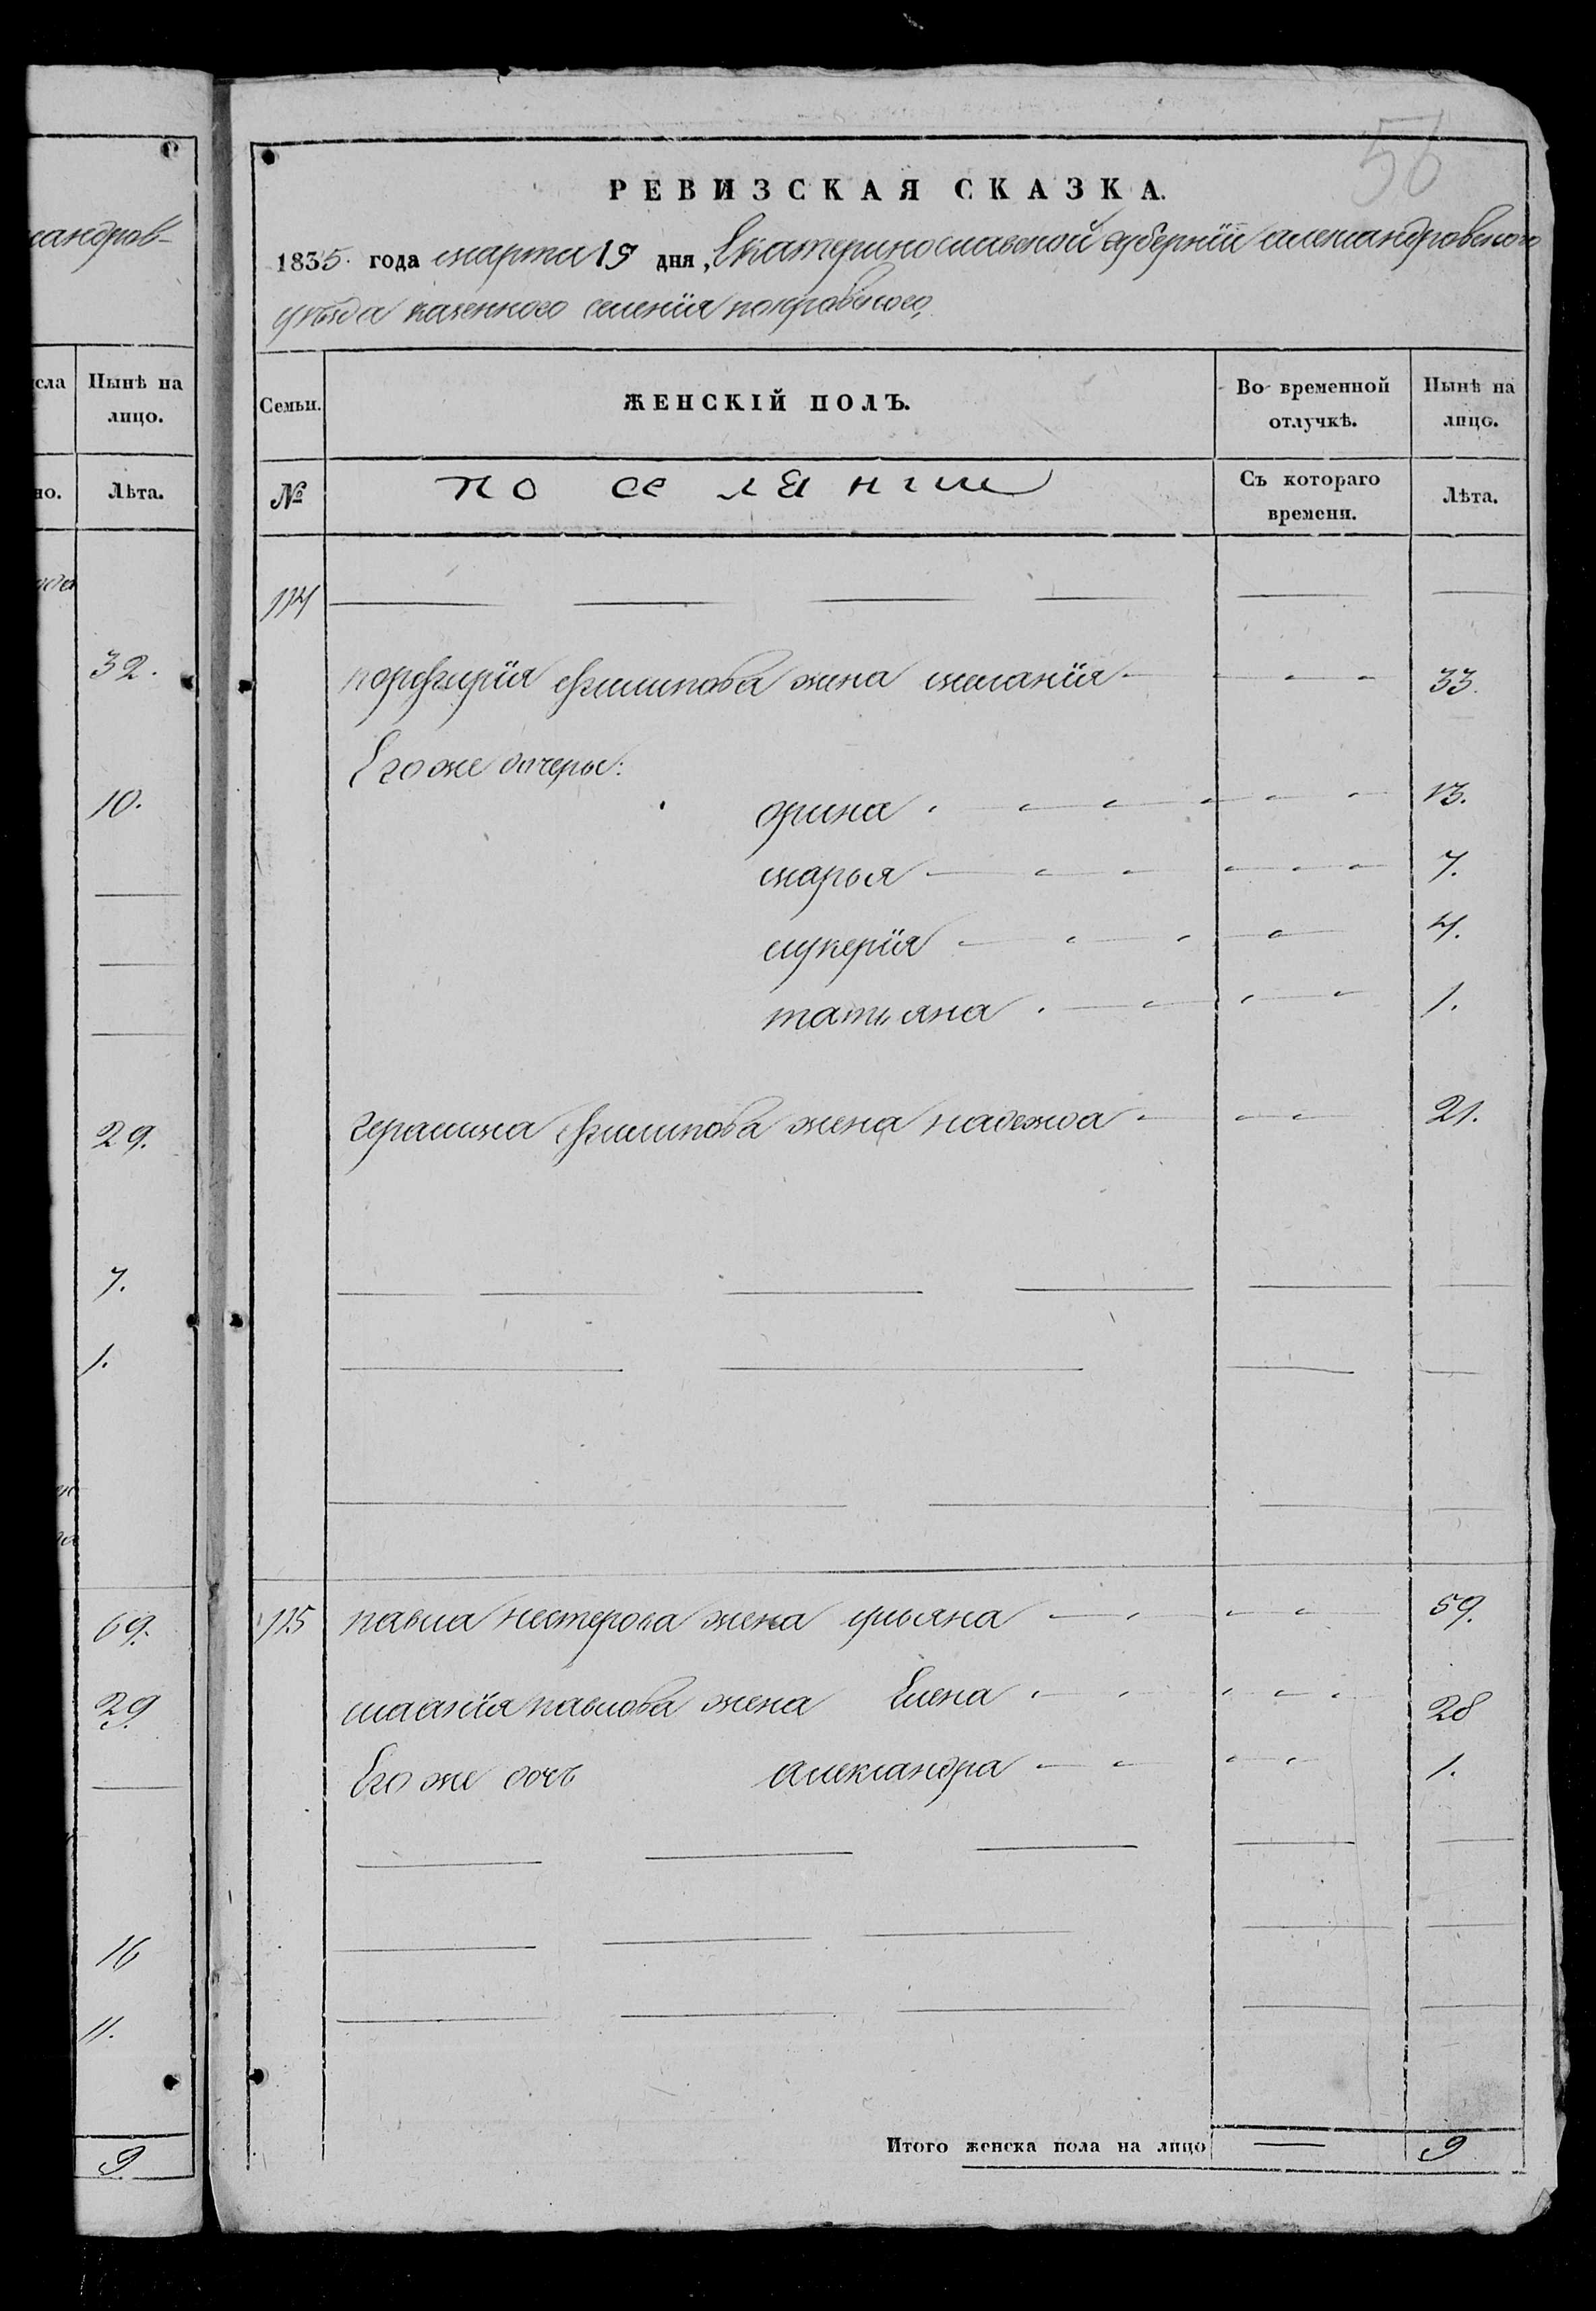 сандров-
сла Нынѣ на
лицо.
но. Лѣта.
32.
10.
29.
7.
1.
69.
29.
16
11.
9
56
РЕВИЗСКАЯ СКАЗКА.
1835. года марта 19 дня, Екатеринославской губернїи александровского
уѣзда казенного селенїя покровского,
Семьи. ЖЕНСКІЙ ПОЛЪ. Во временной отлучкѣ. Нынѣ на лицо.
№ поселянии Съ котораго времени. Лѣта.
114
порфирїя филипова жена меланїя 33.
Его же дочеры:
орина 13.
марья 7.
лукерїя 4.
татьяна 1.
герасима филипова жена надежда 21.
115 павла нестерова жена ульяна 59.
павлова жена Елена 28
Его же дочь александра 1.
Итого женска пола на лицо 9